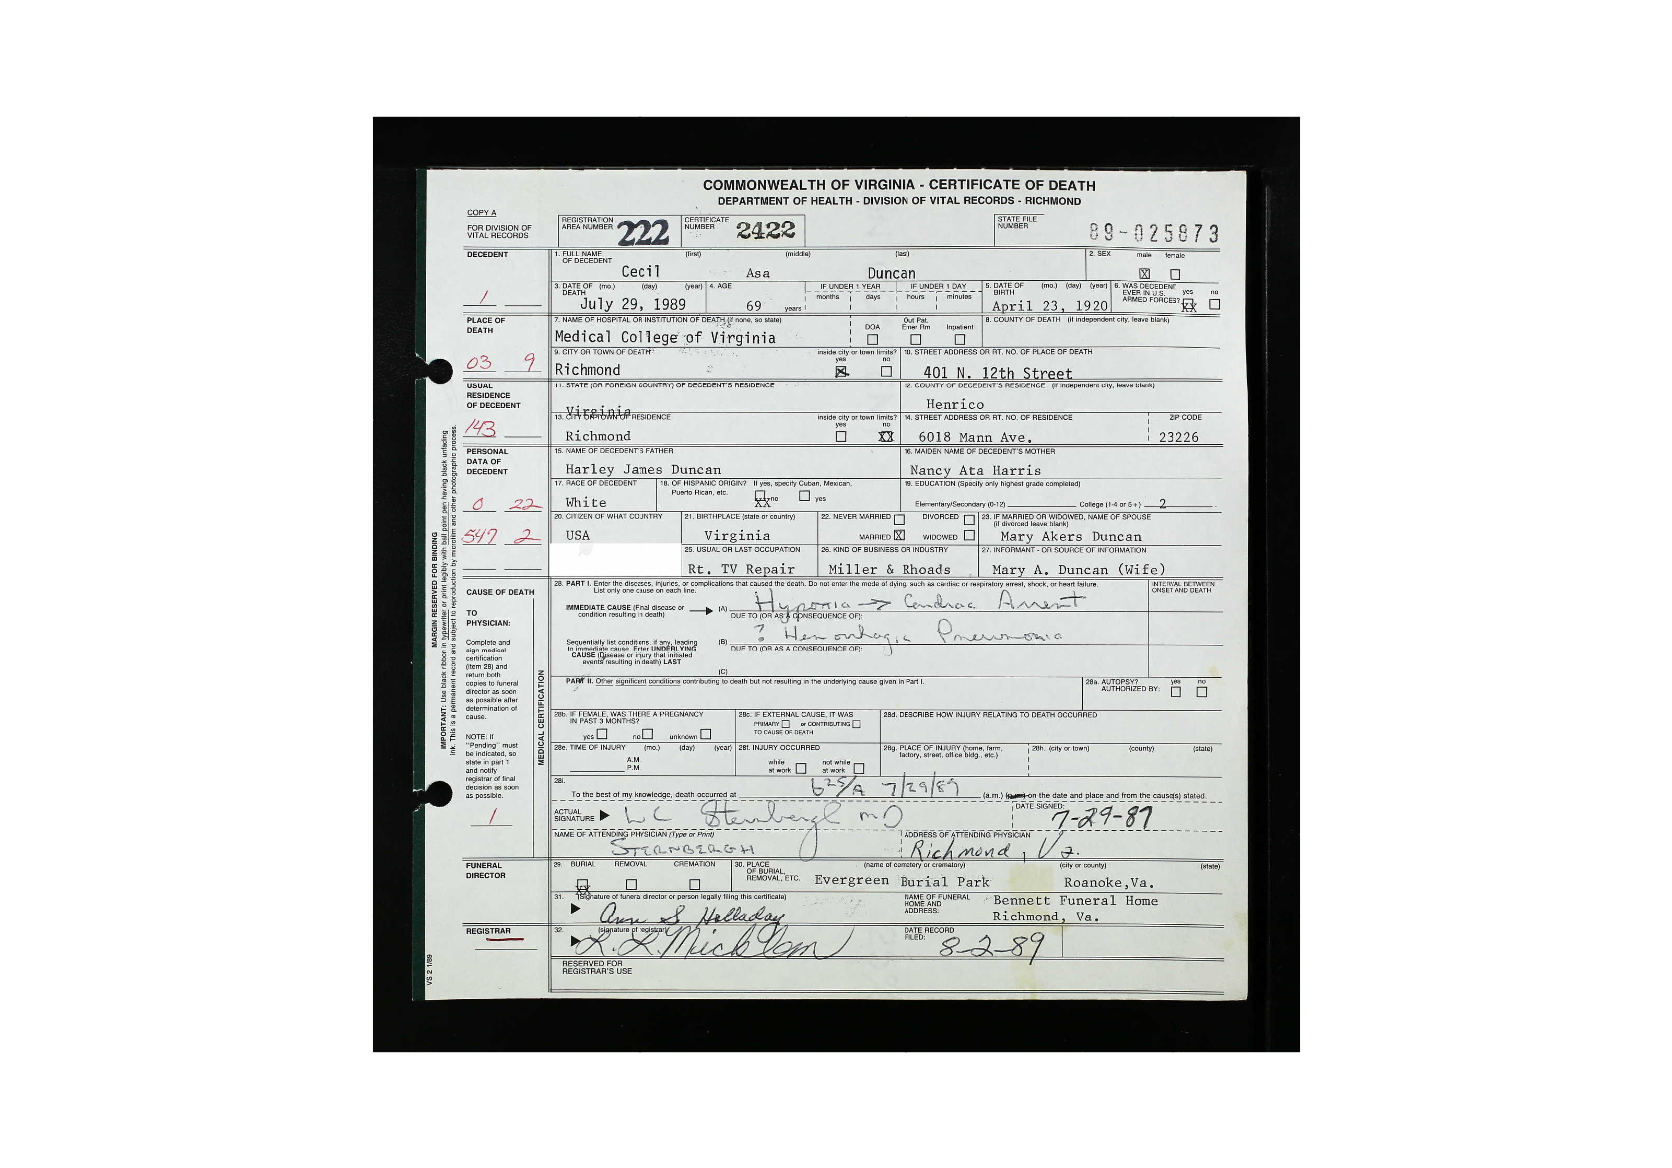 COMMONWEALTH OF VIRGINIA - CERTIFICATE OF DEATH
DEPARTMENT OF HEALTH - DIVISION OF VITAL RECORDS - RICHMOND
COPY A
FOR DIVISION OF
VITAL RECORDS
REGISTRATION
AREA NUMBER 222
CERTIFICATE
NUMBER 2422
STATE FILE
NUMBER 89-025873
DECEDENT
1. FULL NAME (first) (middle) (last)
OF DECEDENT
Cecil Asa Duncan
2. SEX male female
X
3. DATE OF (mo.) (day) (year)
DEATH
July 29, 1989
4. AGE
69 years
IF UNDER 1 YEAR
months days
IF UNDER 1 DAY
hours minutes
5. DATE OF (mo.) (day) (year)
BIRTH
April 23, 1920
6. WAS DECEDENT
EVER IN U.S.
ARMED FORCES? yes no
XX
1
PLACE OF
DEATH
03 9
7. NAME OF HOSPITAL OR INSTITUTION OF DEATH (if none, so state)
Medical College of Virginia
DOA
Out Pat.
Emer Rm
Inpatient
8. COUNTY OF DEATH (if independent city, leave blank)
9. CITY OR TOWN OF DEATH
Richmond
inside city or town limits?
yes no
X
10. STREET ADDRESS OR RT. NO. OF PLACE OF DEATH
401 N. 12th Street
USUAL
RESIDENCE
OF DECEDENT
143
11. STATE (OR FOREIGN COUNTRY) OF DECEDENT'S RESIDENCE
Virginia
12. COUNTY OF DECEDENT'S RESIDENCE (if independent city, leave blank)
Henrico
13. CITY OR TOWN OF RESIDENCE
Richmond
inside city or town limits?
yes no
XX
14. STREET ADDRESS OR RT. NO. OF RESIDENCE
6018 Mann Ave.
ZIP CODE
23226
PERSONAL
DATA OF
DECEDENT
0 22
547 2
15. NAME OF DECEDENT'S FATHER
Harley James Duncan
16. MAIDEN NAME OF DECEDENT'S MOTHER
Nancy Ata Harris
17. RACE OF DECEDENT
White
18. OF HISPANIC ORIGIN? If yes, specify Cuban, Mexican,
Puerto Rican, etc. no yes
XX
19. EDUCATION (Specify only highest grade completed)
Elementary/Secondary (0-12) College (1-4 or 5+) 2
20. CITIZEN OF WHAT COUNTRY
USA
21. BIRTHPLACE (state or country)
Virginia
22. NEVER MARRIED DIVORCED
MARRIED X WIDOWED
23. IF MARRIED OR WIDOWED, NAME OF SPOUSE
(if divorced leave blank)
Mary Akers Duncan
25. USUAL OR LAST OCCUPATION
Rt. TV Repair
26. KIND OF BUSINESS OR INDUSTRY
Miller & Rhoads
27. INFORMANT - OR SOURCE OF INFORMATION
Mary A. Duncan (Wife)
CAUSE OF DEATH
TO
PHYSICIAN:
Complete and
sign medical
certification
(item 28) and
return both
copies to funeral
director as soon
as possible after
determination of
cause.
NOTE: If
"Pending" must
be indicated, so
state in part 1
and notify
registrar of final
decision as soon
as possible.
1
MEDICAL CERTIFICATION
28. PART I. Enter the diseases, injuries, or complications that caused the death. Do not enter the mode of dying, such as cardiac or respiratory arrest, shock, or heart failure.
List only one cause on each line.
INTERVAL BETWEEN
ONSET AND DEATH
IMMEDIATE CAUSE (Final disease or
condition resulting in death)
(A) Hypoxia → Cardiac Arrest
DUE TO (OR AS A CONSEQUENCE OF):
Sequentially list conditions, if any, leading
to immediate cause. Enter UNDERLYING
CAUSE (Disease or injury that initiated
events resulting in death) LAST
(B) ? Hemorrhagic Pneumonia
DUE TO (OR AS A CONSEQUENCE OF):
(C)
PART II. Other significant conditions contributing to death but not resulting in the underlying cause given in Part I.
28a. AUTOPSY? yes no
AUTHORIZED BY:
28b. IF FEMALE, WAS THERE A PREGNANCY
IN PAST 3 MONTHS?
yes no unknown
28c. IF EXTERNAL CAUSE, IT WAS
PRIMARY or CONTRIBUTING
TO CAUSE OF DEATH
28d. DESCRIBE HOW INJURY RELATING TO DEATH OCCURRED
28e. TIME OF INJURY (mo.) (day) (year)
A.M.
P.M.
28f. INJURY OCCURRED
while not while
at work at work
28g. PLACE OF INJURY (home, farm,
factory, street, office bldg., etc.)
28h. (city or town) (county) (state)
28i.
To the best of my knowledge, death occurred at 625/A 7/29/89 (a.m.) on the date and place and from the cause(s) stated.
ACTUAL
SIGNATURE WC Sternbergh MD
DATE SIGNED:
7-29-89
NAME OF ATTENDING PHYSICIAN (Type or Print)
STERNBERGH
ADDRESS OF ATTENDING PHYSICIAN
Richmond, Va.
FUNERAL
DIRECTOR
29. BURIAL REMOVAL CREMATION
XX
30. PLACE
OF BURIAL,
REMOVAL, ETC.
(name of cemetery or crematory) (city or county) (state)
Evergreen Burial Park Roanoke,Va.
31. (Signature of funeral director or person legally filing this certificate)
Ann S Holladay
NAME OF FUNERAL
HOME AND
ADDRESS:
Bennett Funeral Home
Richmond, Va.
REGISTRAR
32. (signature of registrar)
DATE RECORD
FILED: 8-2-89
RESERVED FOR
REGISTRAR'S USE
MARGIN RESERVED FOR BINDING
IMPORTANT: Use black ribbon in typewriter or print legibly with ball point pen having black unfading
ink. This is a permanent record and subject to reproduction by microfilm and other photographic process.
VS 2 1/89